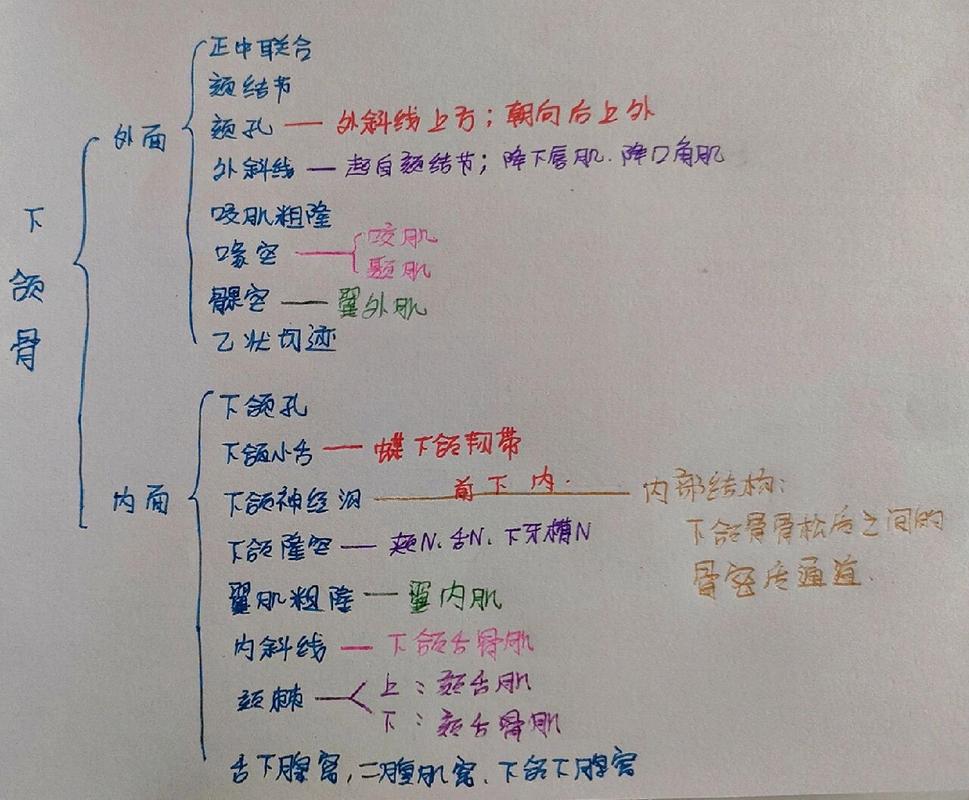 下颌骨
外面
正中联合
颏结节
颏孔 — 外斜线上方；朝向后上外
外斜线 — 起自颏结节；降下唇肌、降口角肌
咬肌粗隆
喙突 — 咬肌
颞肌
髁突 — 翼外肌
乙状切迹
内面
下颌孔
下颌小舌 — 蝶下颌韧带
下颌神经沟 — 前下内. — 内部结构:
下颌骨骨松质之间的
骨密质通道.
下颌隆突 — 颊N、舌N、下牙槽N
翼肌粗隆 — 翼内肌
内斜线 — 下颌舌骨肌
颏棘 — 上：颏舌肌
下：颏舌骨肌
舌下腺窝,二腹肌窝、下颌下腺窝